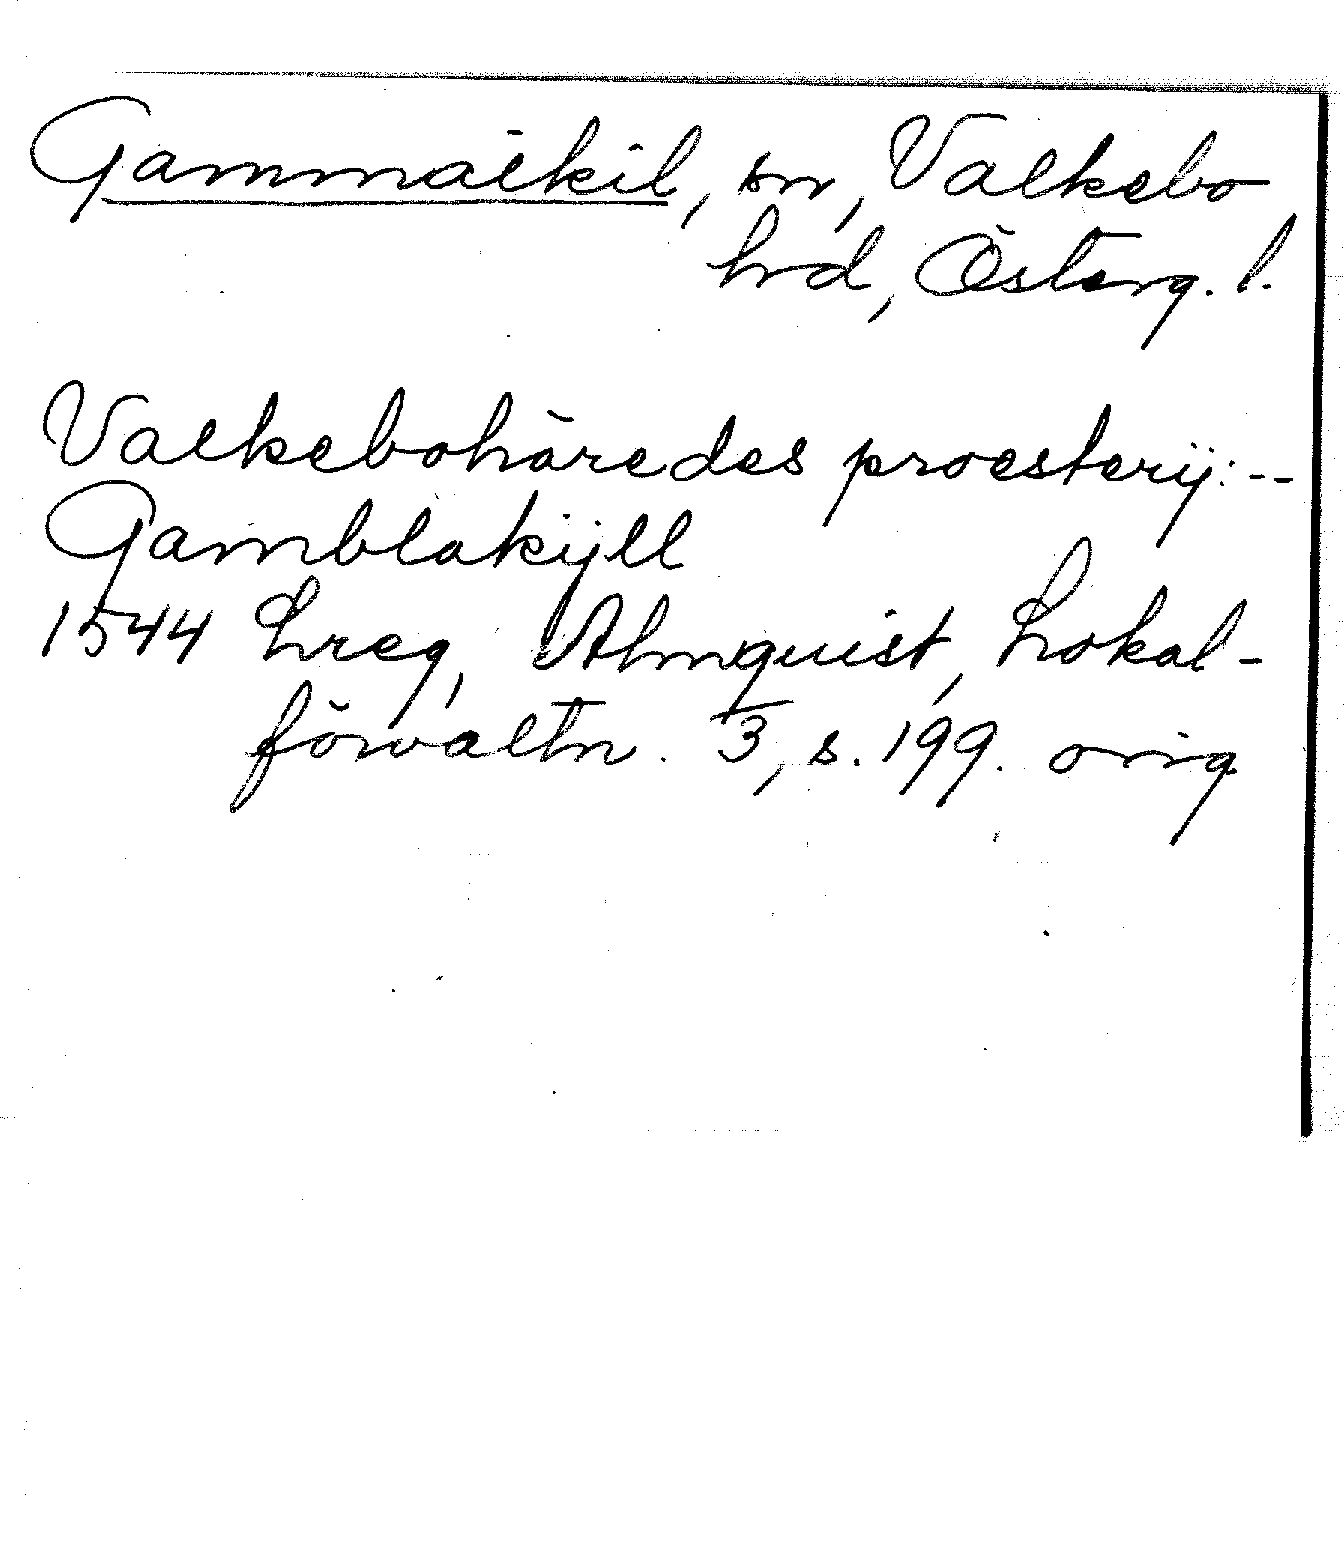 Gammalkil, sn, Valkebo
hd, Österg. l.
Valkebohäredes proesterij: --
Gamblakijll
1544 Lreg, Almquist, Lokal-
förvaltn. 3, s. 199. orig